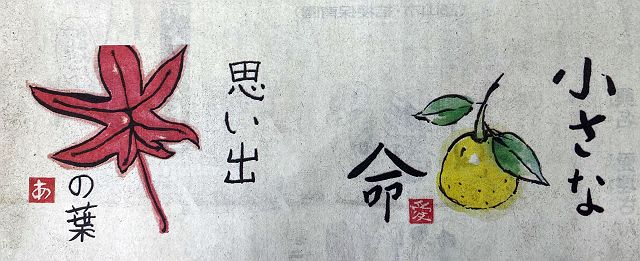 小さな
命
愛
思い出
の葉
あ